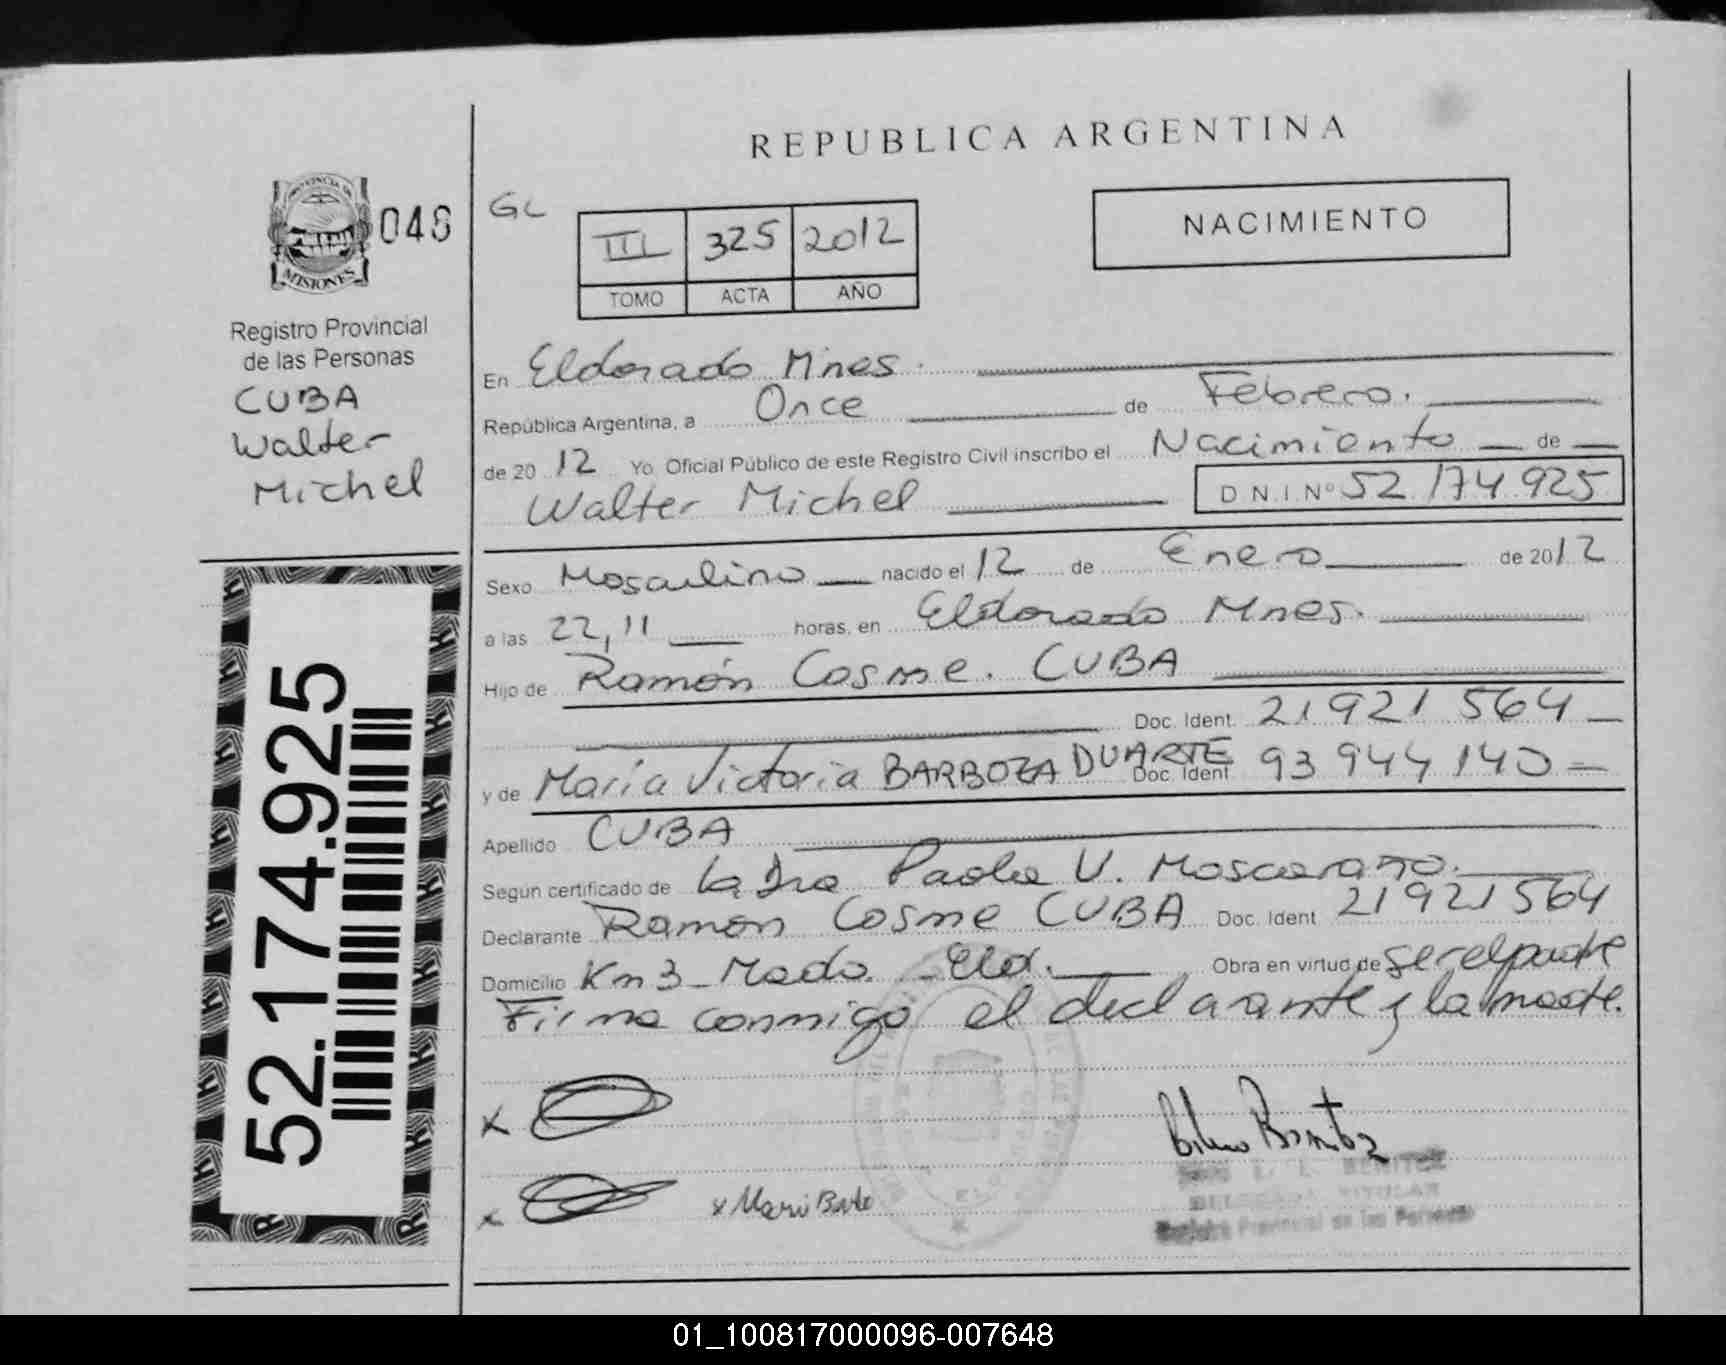 REPUBLICA ARGENTINA
PROVINCIA DE
MISIONES
048
GL
III 325 2012
TOMO ACTA AÑO
NACIMIENTO
Registro Provincial
de las Personas
CUBA
Walter
Michel
52.174.925
En Eldorado Mnes.
República Argentina, a Once de Febrero.
de 20 12 Yo Oficial Público de este Registro Civil inscribo el Nacimiento de
Walter Michel D.N.I. Nº 52 174 925
Sexo Masculino nacido el 12 de Enero de 2012
a las 22,11 horas, en Eldorado Mnes.
Hijo de Ramón Cosme. CUBA
Doc. Ident. 21 921 564
y de María Victoria BARBOZA DUARTE Doc. Ident. 93 944 140
Apellido CUBA
Según certificado de la Dra Paola V.
Declarante Ramón Cosme CUBA Doc. Ident. 21921564
Domicilio Km 3 - Mado. - Eld. Obra en virtud de ser el padre
Firma conmigo el declarante y la madre.
x
x x
BENITEZ
TITULAR
Registro Provincial de las Personas
01_100817000096-007648